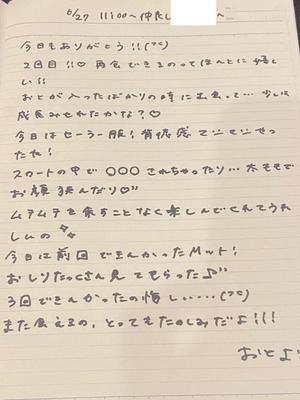 6/27 11:00〜仲良し 〜
今日もありがとう!!(;;)
2回目!!♡ 再会できるのってほんとに嬉し
い!!
おとが入ったばかりの時に出会って… 少しは
成長みせれたかな?♡
今日はセーラー服! 背徳感でにこにこやっ
たね!
スカートの中で〇〇〇されちゃったり… 太ももで
お顔挟んだり♡"
ムチムチを余すことなく楽しんでくれてうれ
しいの
今日は前回できんかったMット!
おしりたっくさん見てもらった♪"
3回できんかったの悔しい…(;;)
また会えるの、とってもたのしみだよ!!!
おとより